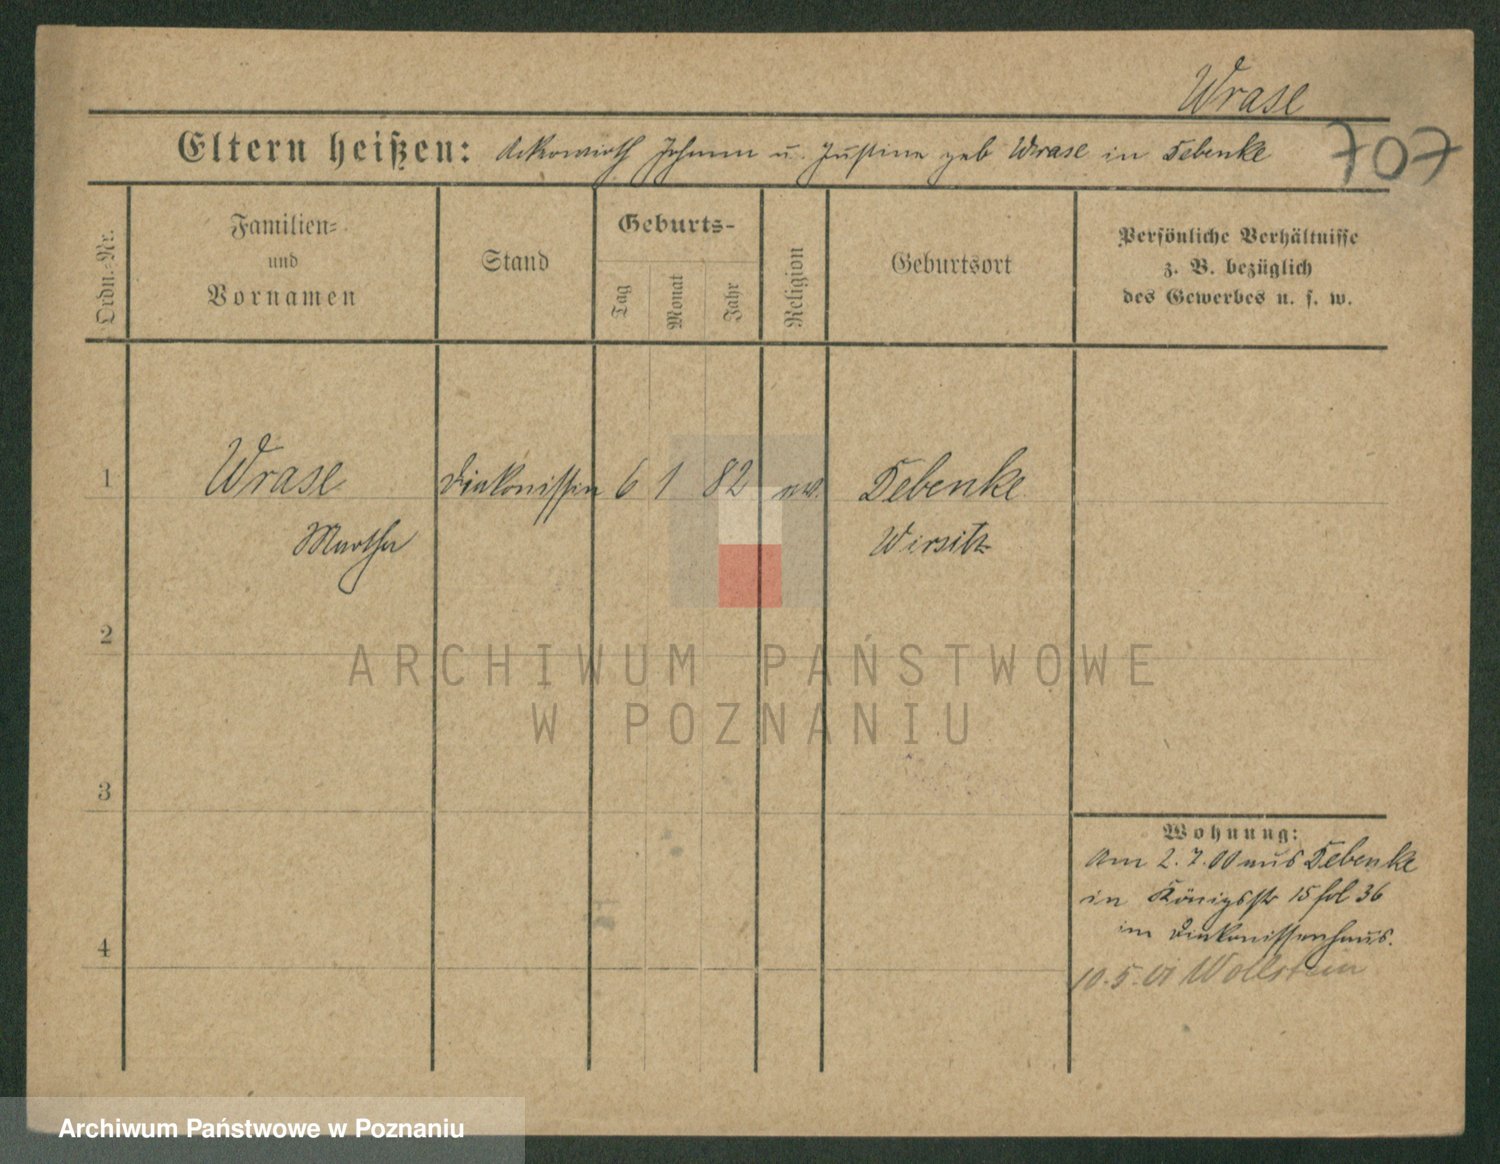 Wrase
Eltern heißen: Ackerwirth Johann u. Justine geb Wrase in Debenke
707
Ordn.-Nr.
Familien- und Vornamen
Stand
Geburts-
Tag
Monat
Jahr
Religion
Geburtsort
Persönliche Verhältnisse
z. B. bezüglich
des Gewerbes u. s. w.
1 Wrase Diakonissin 6 1 82 ev. Debenke
Martha Wirsitz
2
ARCHIWUM PAŃSTWOWE
W POZNANIU
3
Wohnung:
Am 2.7.00 aus Debenke
in Königsstr 15 fol 36
im Diakonissenhaus.
4
10.5.01 Wollstein
Archiwum Państwowe w Poznaniu